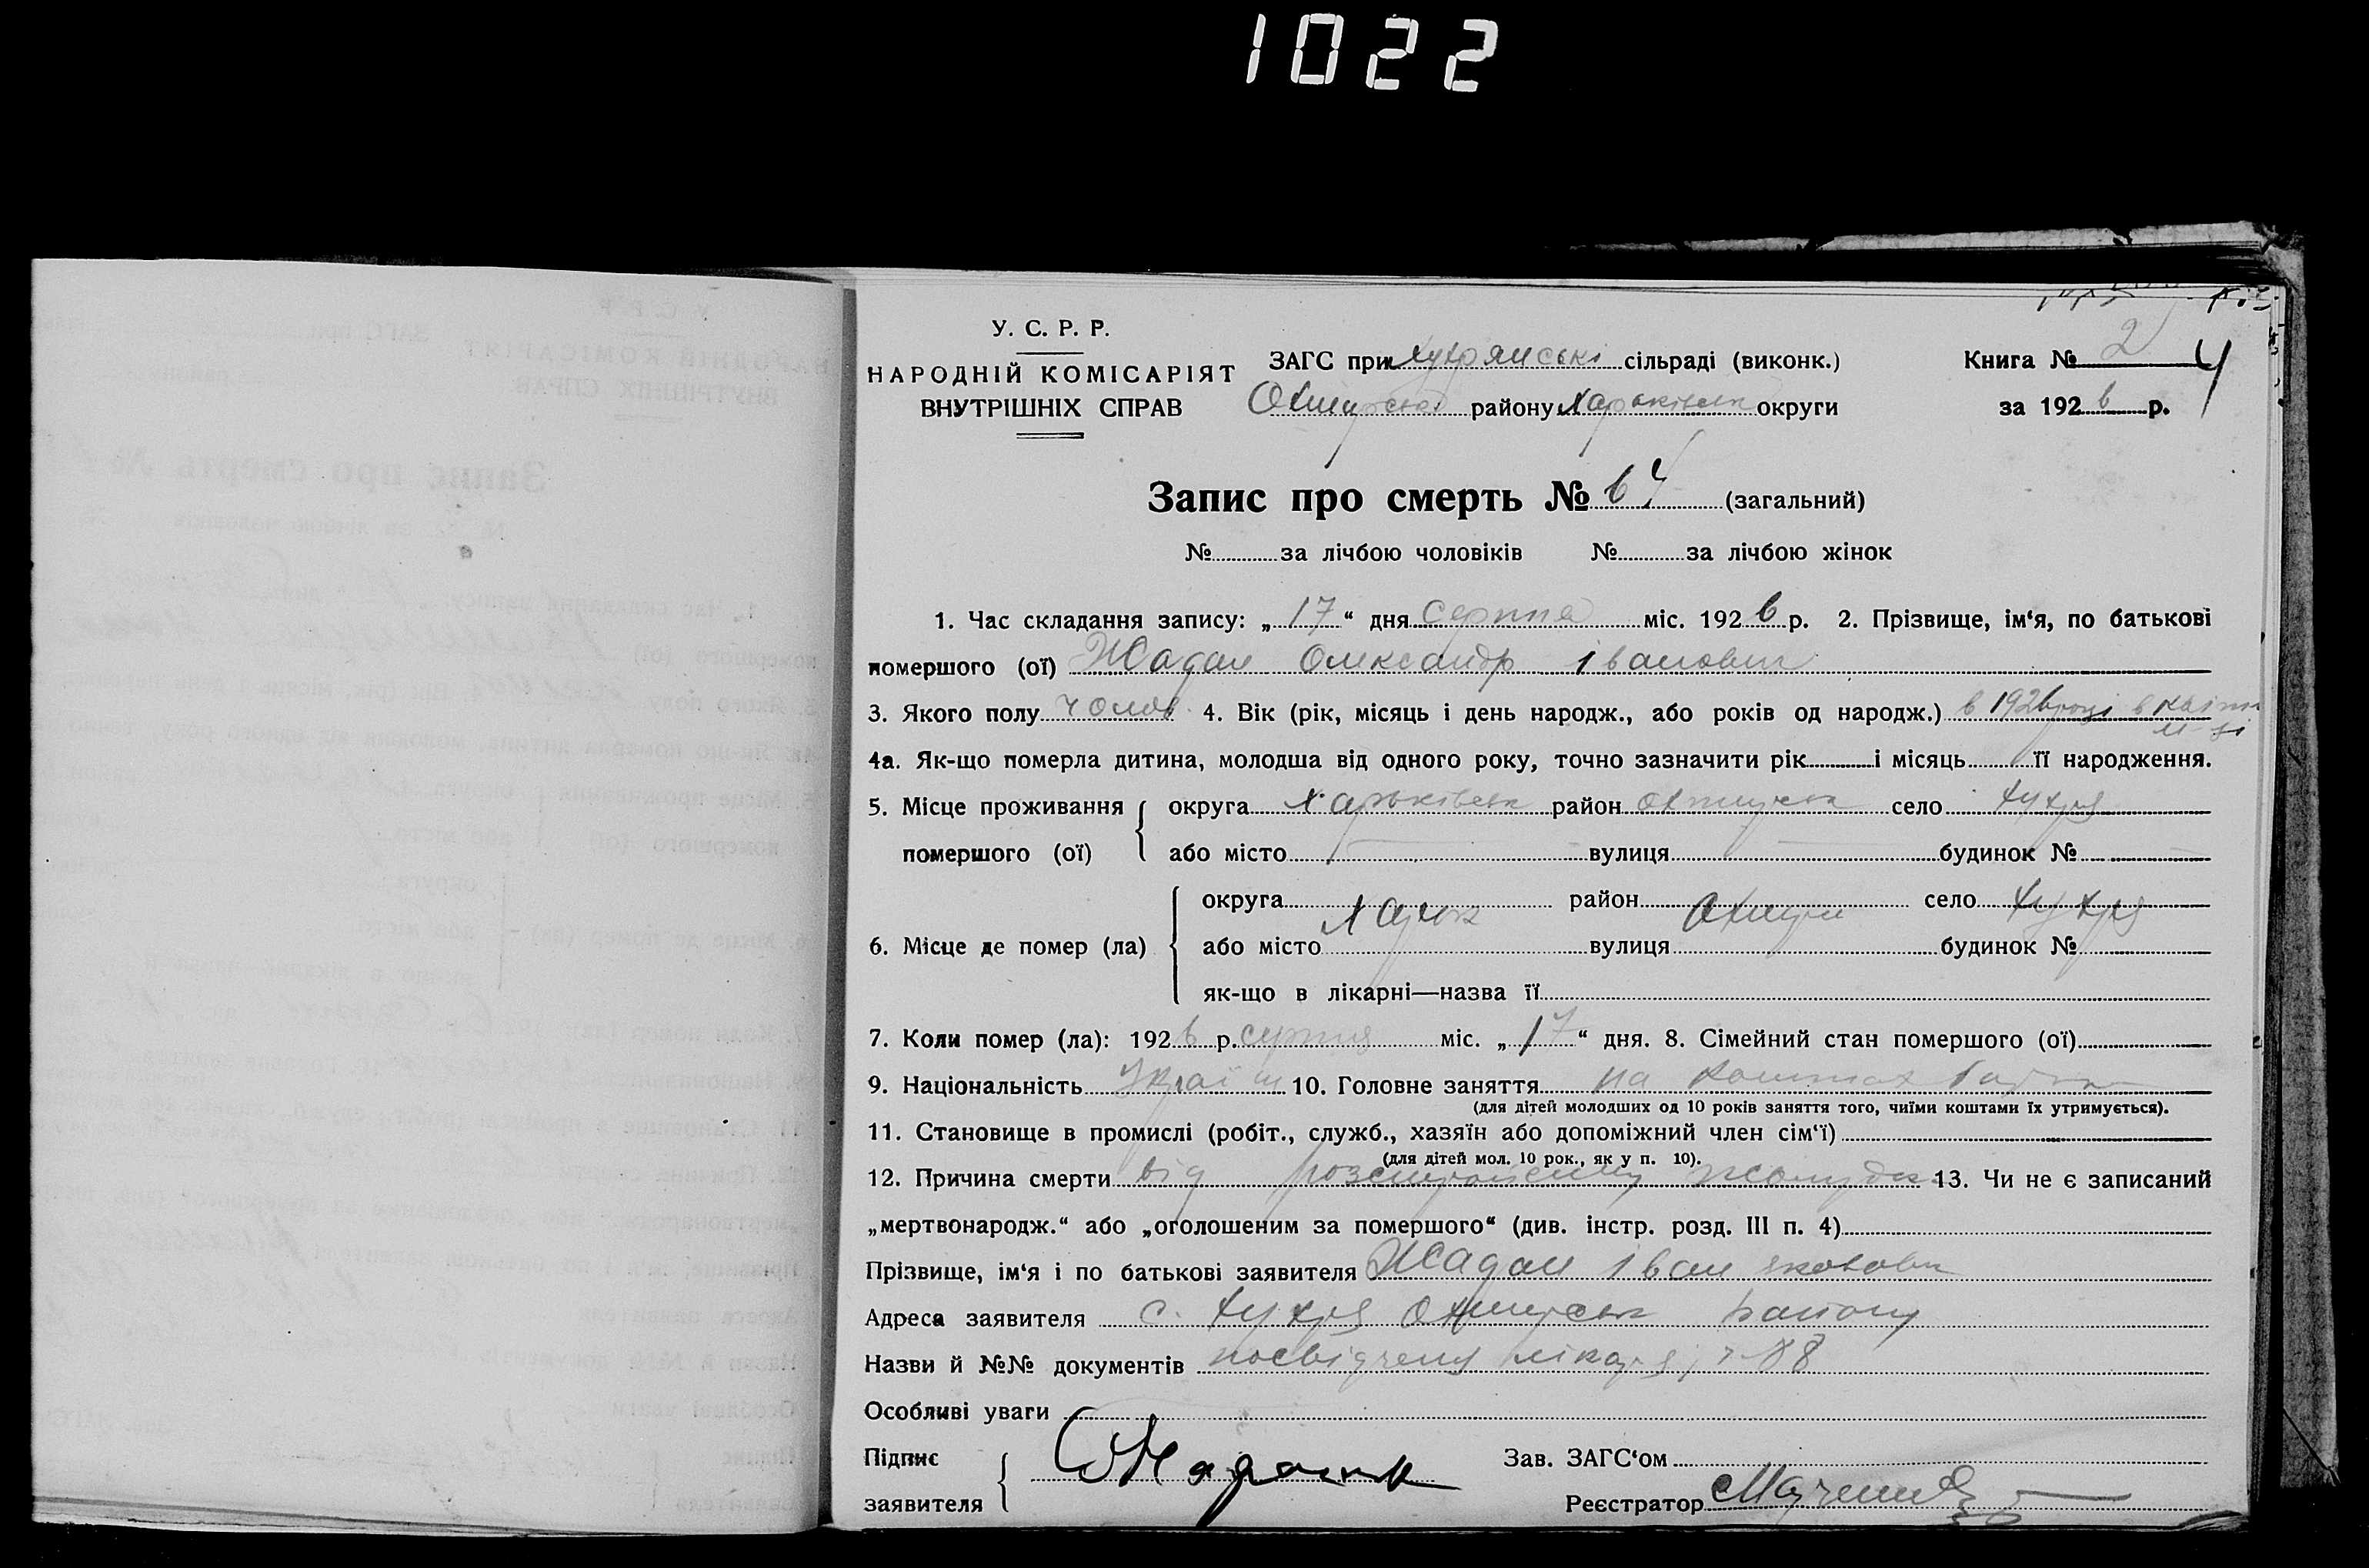 1022
У. С. Р. Р.
НАРОДНІЙ КОМІСАРІЯТ
ВНУТРІШНІХ СПРАВ
ЗАГС при Хухрянські сільраді (виконк.)
Охтирської району Харьківськ округи
Книга № 2
4
за 1926 р.
Запис про смерть № 64 (загальний)
№ за лічбою чоловіків № за лічбою жінок
1. Час складання запису: „ 17 “ дня серпня міс. 1926 р. 2. Прізвище, ім‘я, по батькові
помершого (ої) Жадан Олександр Іванович
3. Якого полу чолов. 4. Вік (рік, місяць і день народж., або років од народж.) в 1926 році в квітн
м-ці
4а. Як-що померла дитина, молодша від одного року, точно зазначити рік і місяць її народження.
5. Місце проживання помершого (ої) округа Харьківськ район Охтирськ село Хухря
або місто вулиця будинок №
6. Місце де помер (ла) округа Харьк район Охтирк село Хухря
або місто вулиця будинок №
як-що в лікарні—назва її
7. Коли помер (ла): 1926 р. серпня міс. „ 17 “ дня. 8. Сімейний стан помершого (ої)
9. Національність Україн 10. Головне заняття на коштах батьк
(для дітей молодших од 10 років заняття того, чиїми коштами їх утримується).
11. Становище в промислі (робіт., служб., хазяїн або допоміжний член сім‘ї)
(для дітей мол. 10 рок., як у п. 10).
12. Причина смерти від жолудк 13. Чи не є записаний
„мертвонародж.“ або „оголошеним за помершого“ (див. інстр. розд. III п. 4)
Прізвище, ім‘я і по батькові заявителя Жадан Іван Якович
Адреса заявителя с. Хухря Охтирськ району
Назви й №№ документів посвідченя лікаря, 88
Особливі уваги
Підпис
заявителя
Зав. ЗАГС‘ом
Реєстратор